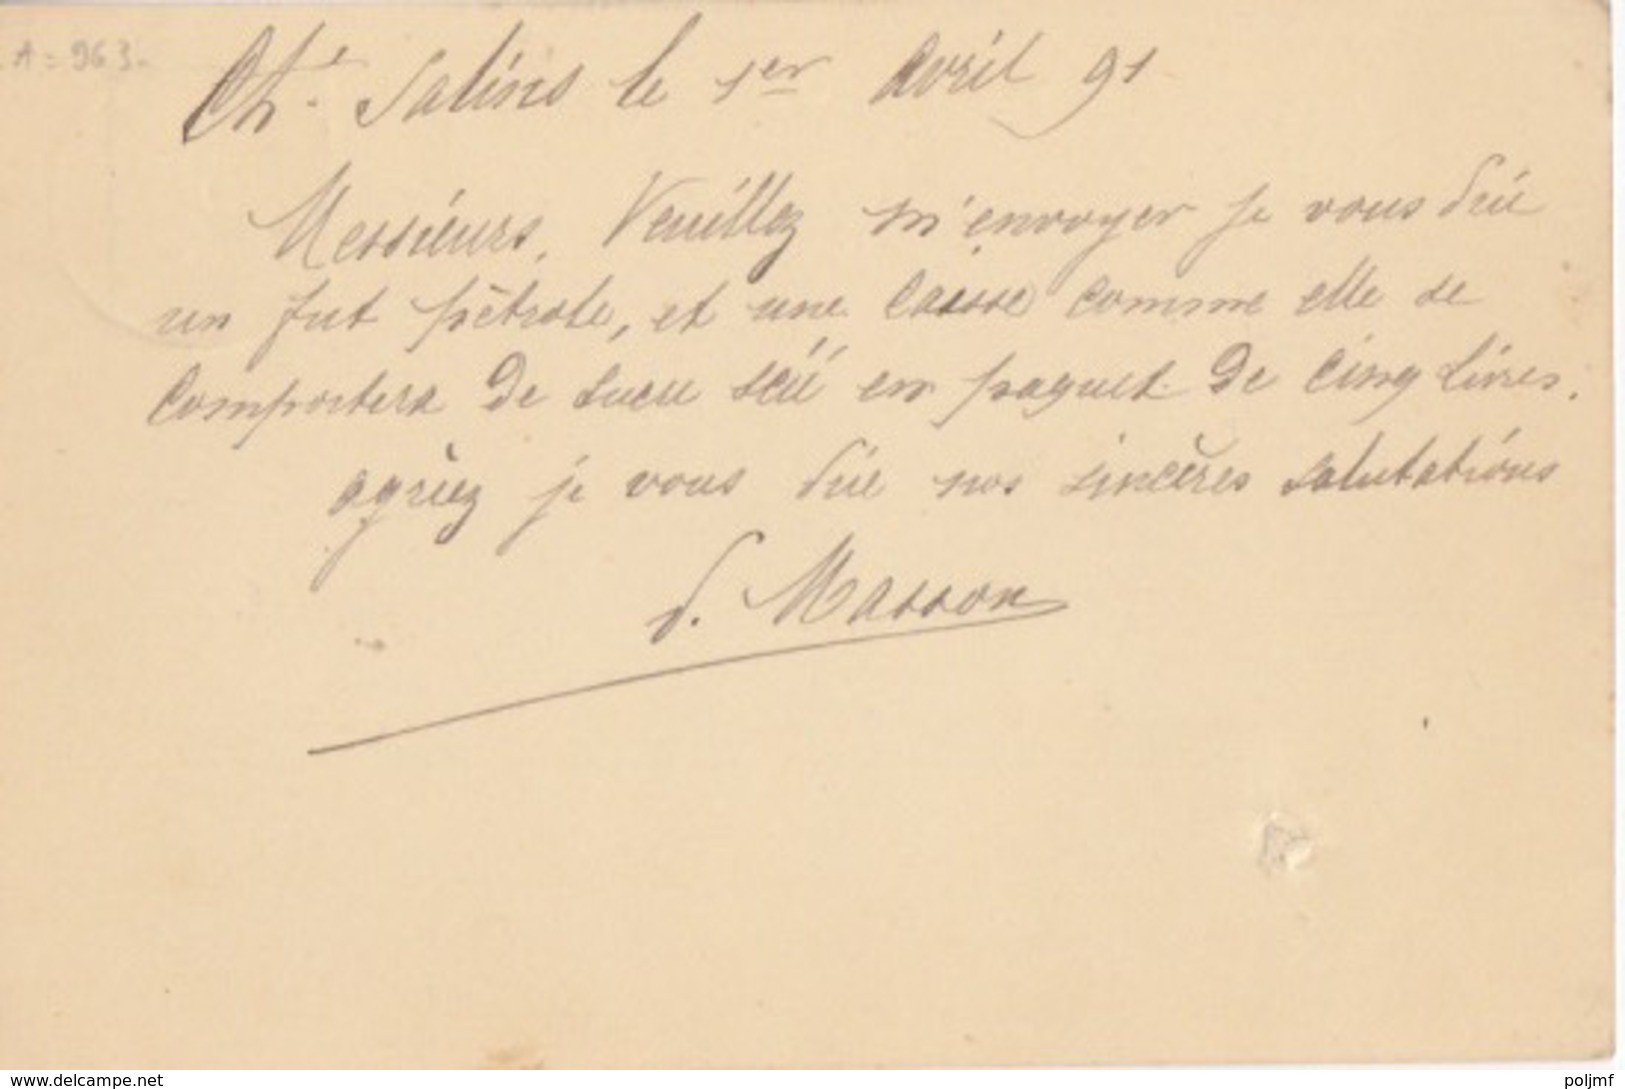 A = 963.
Ch.é Salins le 1er Avril 91
Messieurs. Veuillez m'envoyer je vous prie
un fut pétrole, et une caisse comme elle se
Comportera de sucre scié en paquet de Cinq livres.
agréez je vous prie nos sincères salutations
P. Masson
www.delcampe.net
poljmf